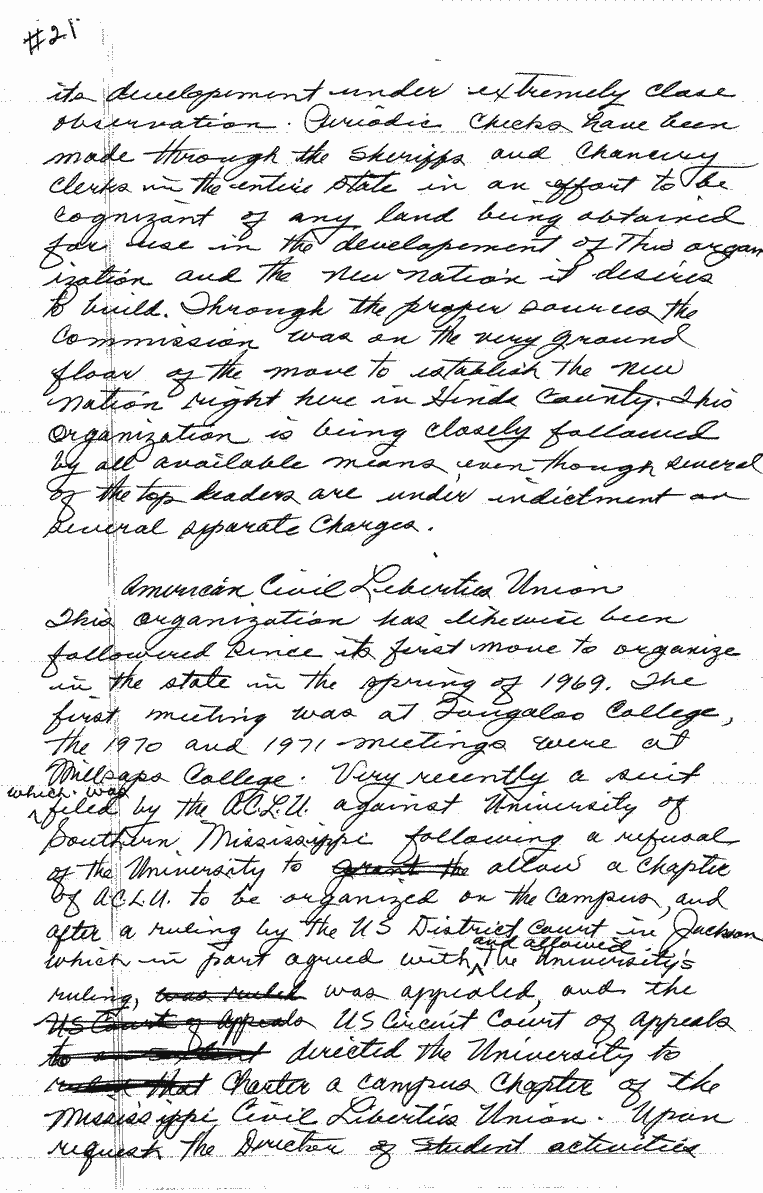 #21
its developement under extremely close
observation. Periodic checks have been
made through the Sheriffs and Chancery
Clerks in the entire state in an effort to be
cognizant of any land being obtained
for use in the developement of This organ
ization and the New Nation it desires
to build. Through the proper sources the
Commission was on the very ground
floor of the move to establish the New
Nation right here in Hinds County. This
Organization is being closely followed
by all available means even though several
of the top leaders are under indictment on
several separate Charges.
American Civil Liberties Union
This organization has likewise been
followed since its first move to organize
in the state in the spring of 1969. The
first meeting was at Tougaloo College,
the 1970 and 1971 meetings were at
Millsaps College. Very recently a suit
which was
filed by the A.C.L.U. against University of
Southern Mississippi following a refusal
of the University to grant the allow a chapter
of A.C.L.U. to be organized on the campus, and
after a ruling by the US District Court in Jackson
and allowed
which in part agreed with the University's
ruling, was ruled was appealed, and the
US Court of Appeals US Circuit Court of Appeals
to an extent directed the University to
ruled that Charter a campus Chapter of the
Mississippi Civil Liberties Union. Upon
request the Director of Student activities